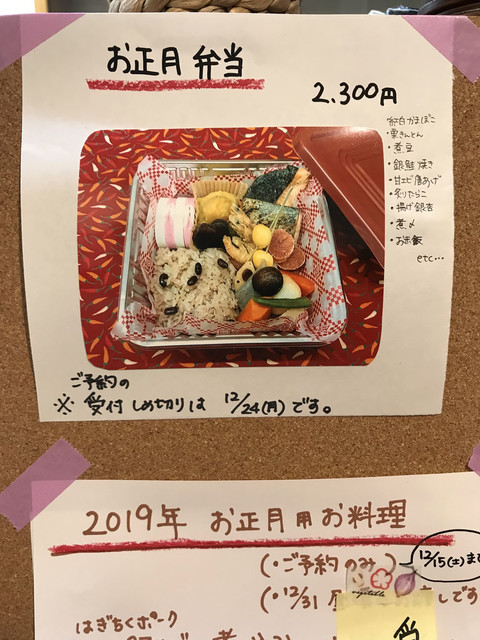 お正月弁当
2,300円
・紅白かまぼこ
・栗きんとん
・煮豆
・銀鮭焼き
・甘エビ唐あげ
・炙りたらこ
・揚げ銀杏
・煮〆
・お赤飯
etc…
ご予約の
※受付しめ切りは 12/24(月)です。
2019年 お正月用お料理
(・ご予約のみ)
12/15(土)ま
(・12/31
しです
vegetable
はぎちくポーク